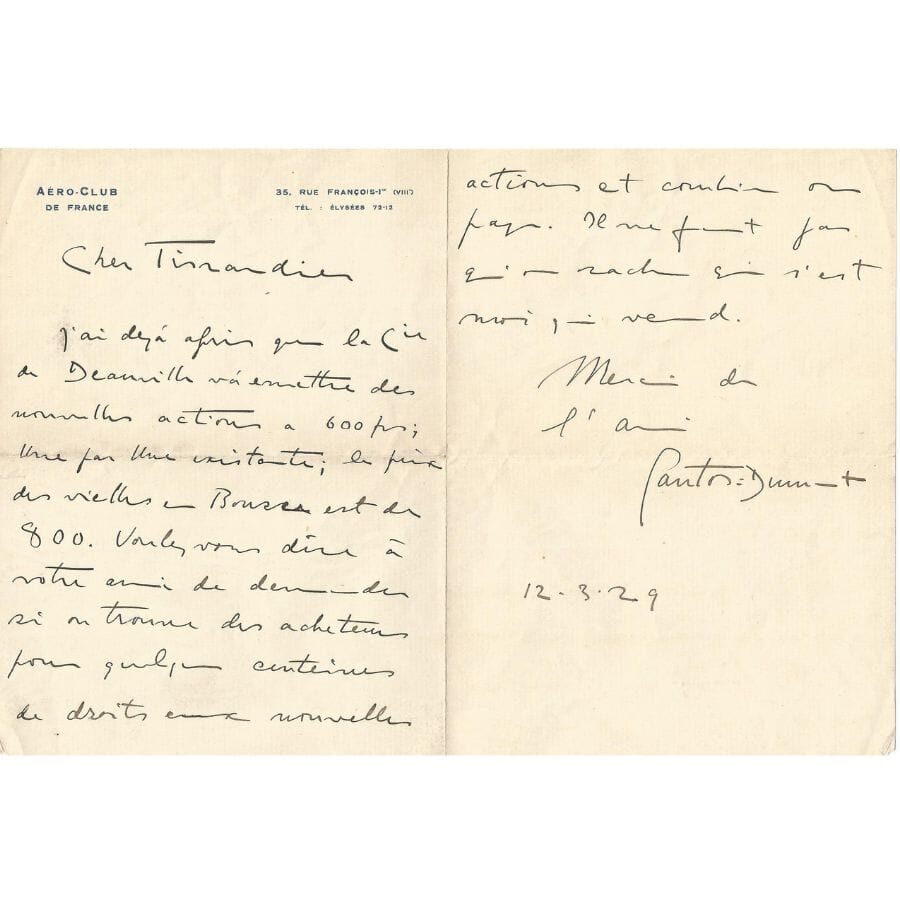 AÉRO-CLUB
DE FRANCE
35, RUE FRANÇOIS-Iᵉʳ (VIIIᵉ)
TÉL. : ÉLYSÉES 72-12
Cher Tissandier
J'ai dejá apris que la Cie
de Deauville vá emettre des
nouvelles actions a 600 frs;
Une par Une existante; le prix
des vielles en Bourse est de
800. Voulez vous dire à
votre ami de demander
si on trouve des acheteurs
pour quelques centaines
de droits aux nouvelles
actions et combien on
paye. Il ne faut pas
qu'on sache que s'est
moi qui vend.
Merci de
l'ami
Santos=Dumont
12-3-29